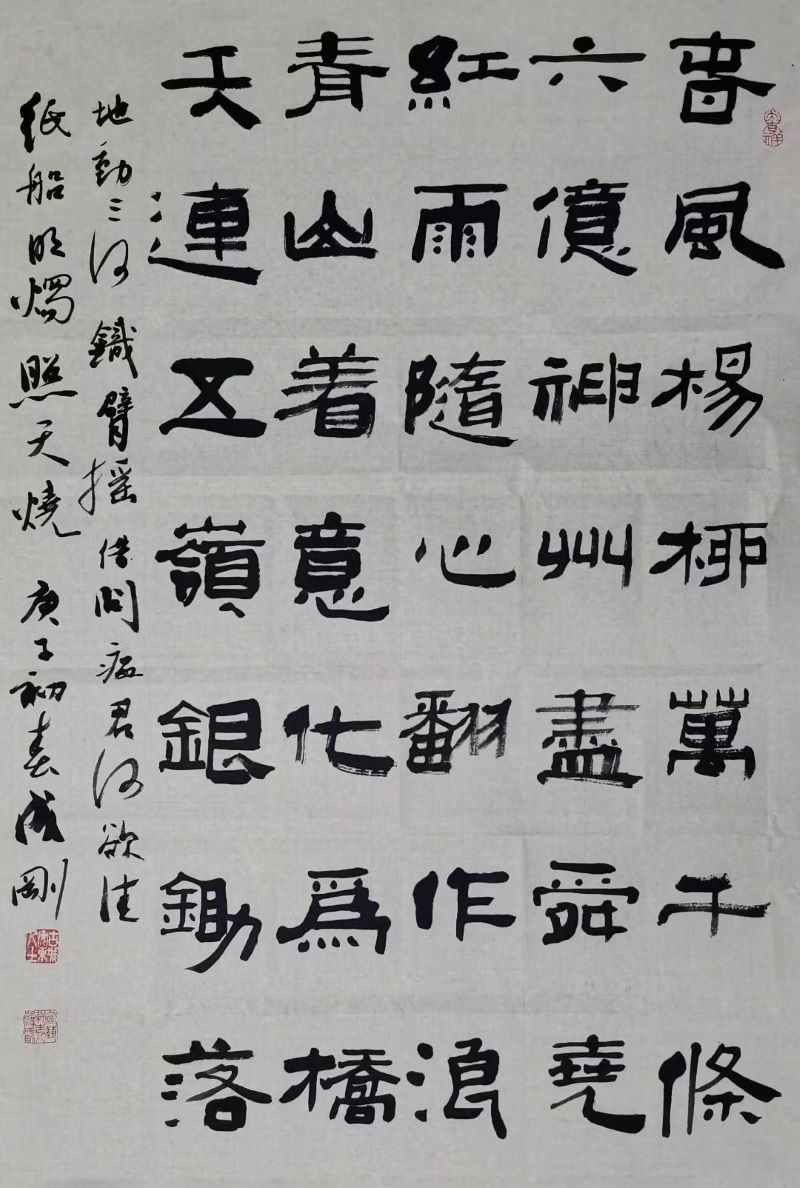 春風楊柳萬千條
六億神州盡舜堯
紅雨隨心翻作浪
青山着意化爲橋
天連五嶺銀鋤落
地動三河鐵臂摇借問瘟君何欲往
紙船明燭照天燒 庚子初春成剛